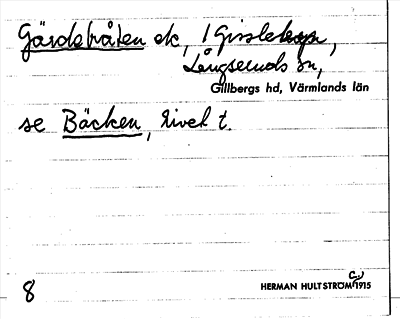 Gärdsbråten ek, 1 Gisslebyn,
Långseruds sn,
Gillbergs hd, Värmlands län
se Bäcken, livel t.
8
HERMAN HULTSTRÖM 1915